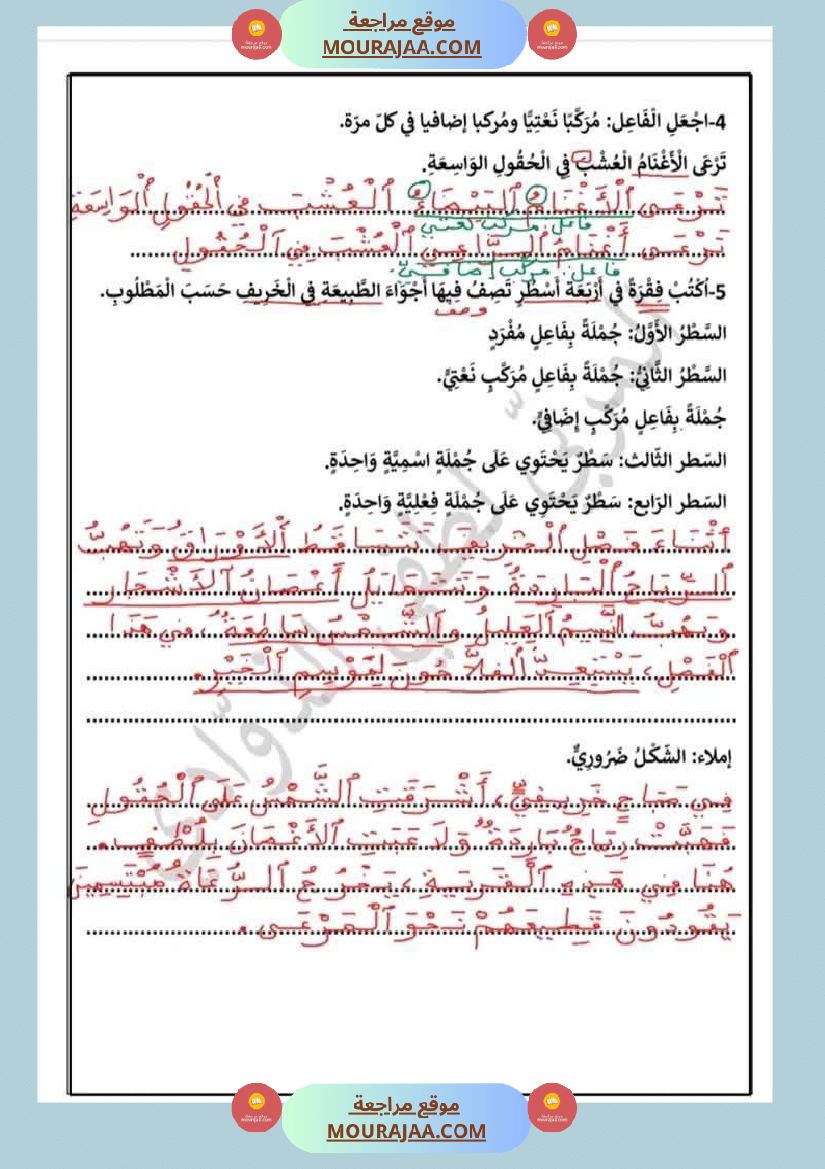 موقع مراجعة
MOURAJAA.COM
4-اجْعَلِ الْفَاعِل: مُرَكَّبًا نَعْتِيًّا ومُركبا إضافيا في كلّ مرّة.
تَرْعَى الْأَغْنَامُ الْعُشْبَ فِي الْحُقُولِ الوَاسِعَةِ.
تَرْعَى الأَغْنَامُ البَيْضَاءُ الْعُشْبَ فِي الْحُقُولِ الْوَاسِعَةِ
فاعل: مركب نعتي
تَرْعَى أَغْنَامُ الرَّاعِي الْعُشْبَ فِي الْحُقُولِ
فاعل: مركب إضافيّ
5-اُكْتُبْ فِقْرَةً في أَرْبَعَة أَسْطُرٍ تَصِفُ فِيهَا أَجْوَاءَ الطَّبِيعَة فِي الْخَرِيفِ حَسَبَ الْمَطْلُوبِ.
وصف
السَّطْرُ الأَوَّلُ: جُمْلَةً بِفَاعِلٍ مُفْرَدٍ
السَّطْرُ الثَّانِيُّ: جُمْلَةً بِفَاعِلٍ مُرَكَّبٍ نَعْتِيٍّ.
جُمْلَةً بِفَاعِلٍ مُرَكَّبٍ إِضَافِيٍّ.
السّطر الثّالث: سَطْرٌ يَحْتَوِي عَلَى جُمْلَةٍ اسْمِيَّةٍ وَاحِدَةٍ.
السّطر الرّابع: سَطْرٌ يَحْتَوِي عَلَى جُمْلَةٍ فَعْلِيَّةٍ وَاحِدَةٍ.
أَثْنَاءَ فَصْلِ الْخَرِيفِ تَتَسَاقَطُ الأَوْرَاقُ وَتَهُبُّ
الرِّيَاحُ الْبَارِدَةُ وَتَتَمَايَلُ أَغْصَانُ الأَشْجَارِ
وَيَهُبُّ النَّسِيمُ العَلِيلُ و الشَّمْسُ سَاطِعَةٌ، فِي هَذَا
الْفَصْلِ، يَسْتَعِدُّ الفَلاَّحُونَ لِمَوْسِمِ الْخَيْرِ.
إملاء: الشَّكْلُ ضَرُورِيٌّ.
فِي صَبَاحٍ خَرِيفِيٍّ، أَشْرَقَتِ الشَّمْسُ عَلَى الْحُقُولِ
فَهَبَّتْ رِيَاحٌ بَارِدَةٌ وَلاَعَبَتِ الأَغْصَانَ بِلُطْفٍ.
هُنَا فِي هَذِهِ الْقَرْيَةِ، يَخْرُجُ الرُّعَاةُ مُبْتَسِمِينَ
يَقُودُونَ قَطِيعَهُمْ نَحْوَ الْمَرْعَى.
موقع مراجعة
MOURAJAA.COM